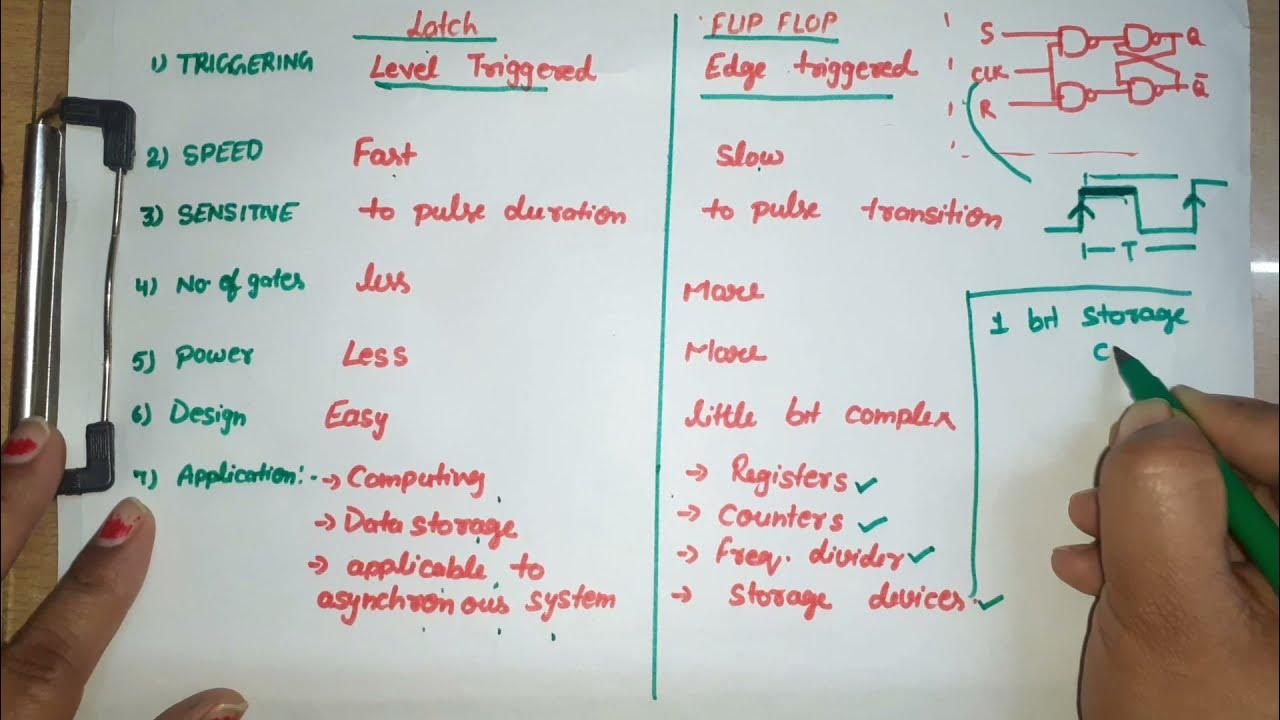 Latch FLIP FLOP
1) TRIGGERING Level Triggered Edge triggered
2) SPEED Fast Slow
3) SENSITIVE to pulse duration to pulse transition
4) No. of gates less More
5) Power Less More
6) Design Easy little bit complex
7) Application:- → Computing → Registers ✓
→ Data storage → Counters ✓
→ applicable to → freq. divider ✓
asynchronous system → storage devices ✓
S Q
CLK
R Q̅
T
1 bit storage
C